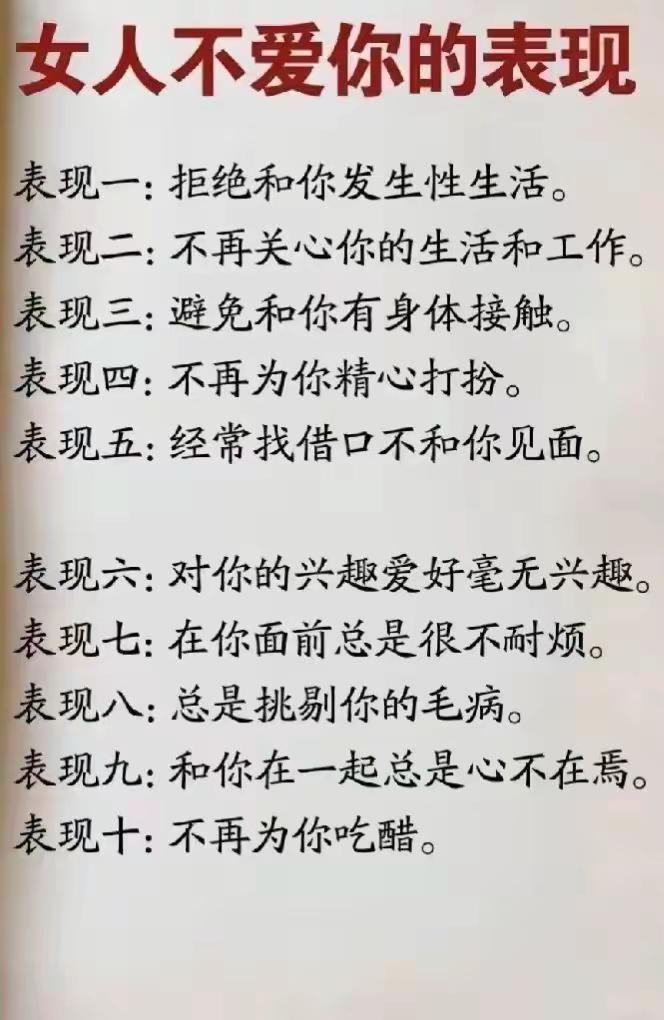 女人不爱你的表现
表现一：拒绝和你发生性生活。
表现二：不再关心你的生活和工作。
表现三：避免和你有身体接触。
表现四：不再为你精心打扮。
表现五：经常找借口不和你见面。
表现六：对你的兴趣爱好毫无兴趣。
表现七：在你面前总是很不耐烦。
表现八：总是挑剔你的毛病。
表现九：和你在一起总是心不在焉。
表现十：不再为你吃醋。